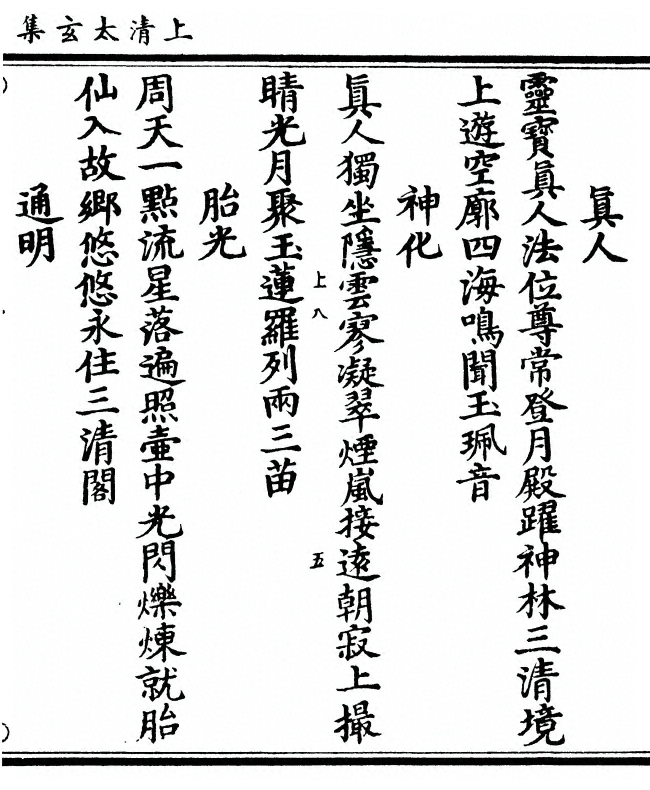 上清太玄集
眞人
靈寶眞人法位尊常登月殿躍神林三清境
上遊空廓四海鳴聞玉珮音
神化
眞人獨坐隱雲寥凝翠煙嵐接遠朝寂上撮
上八
五
晴光月聚玉蓮羅列兩三苗
胎光
周天一點流星落遍照壷中光閃爍煉就胎
仙入故鄉悠悠永住三清閣
通明